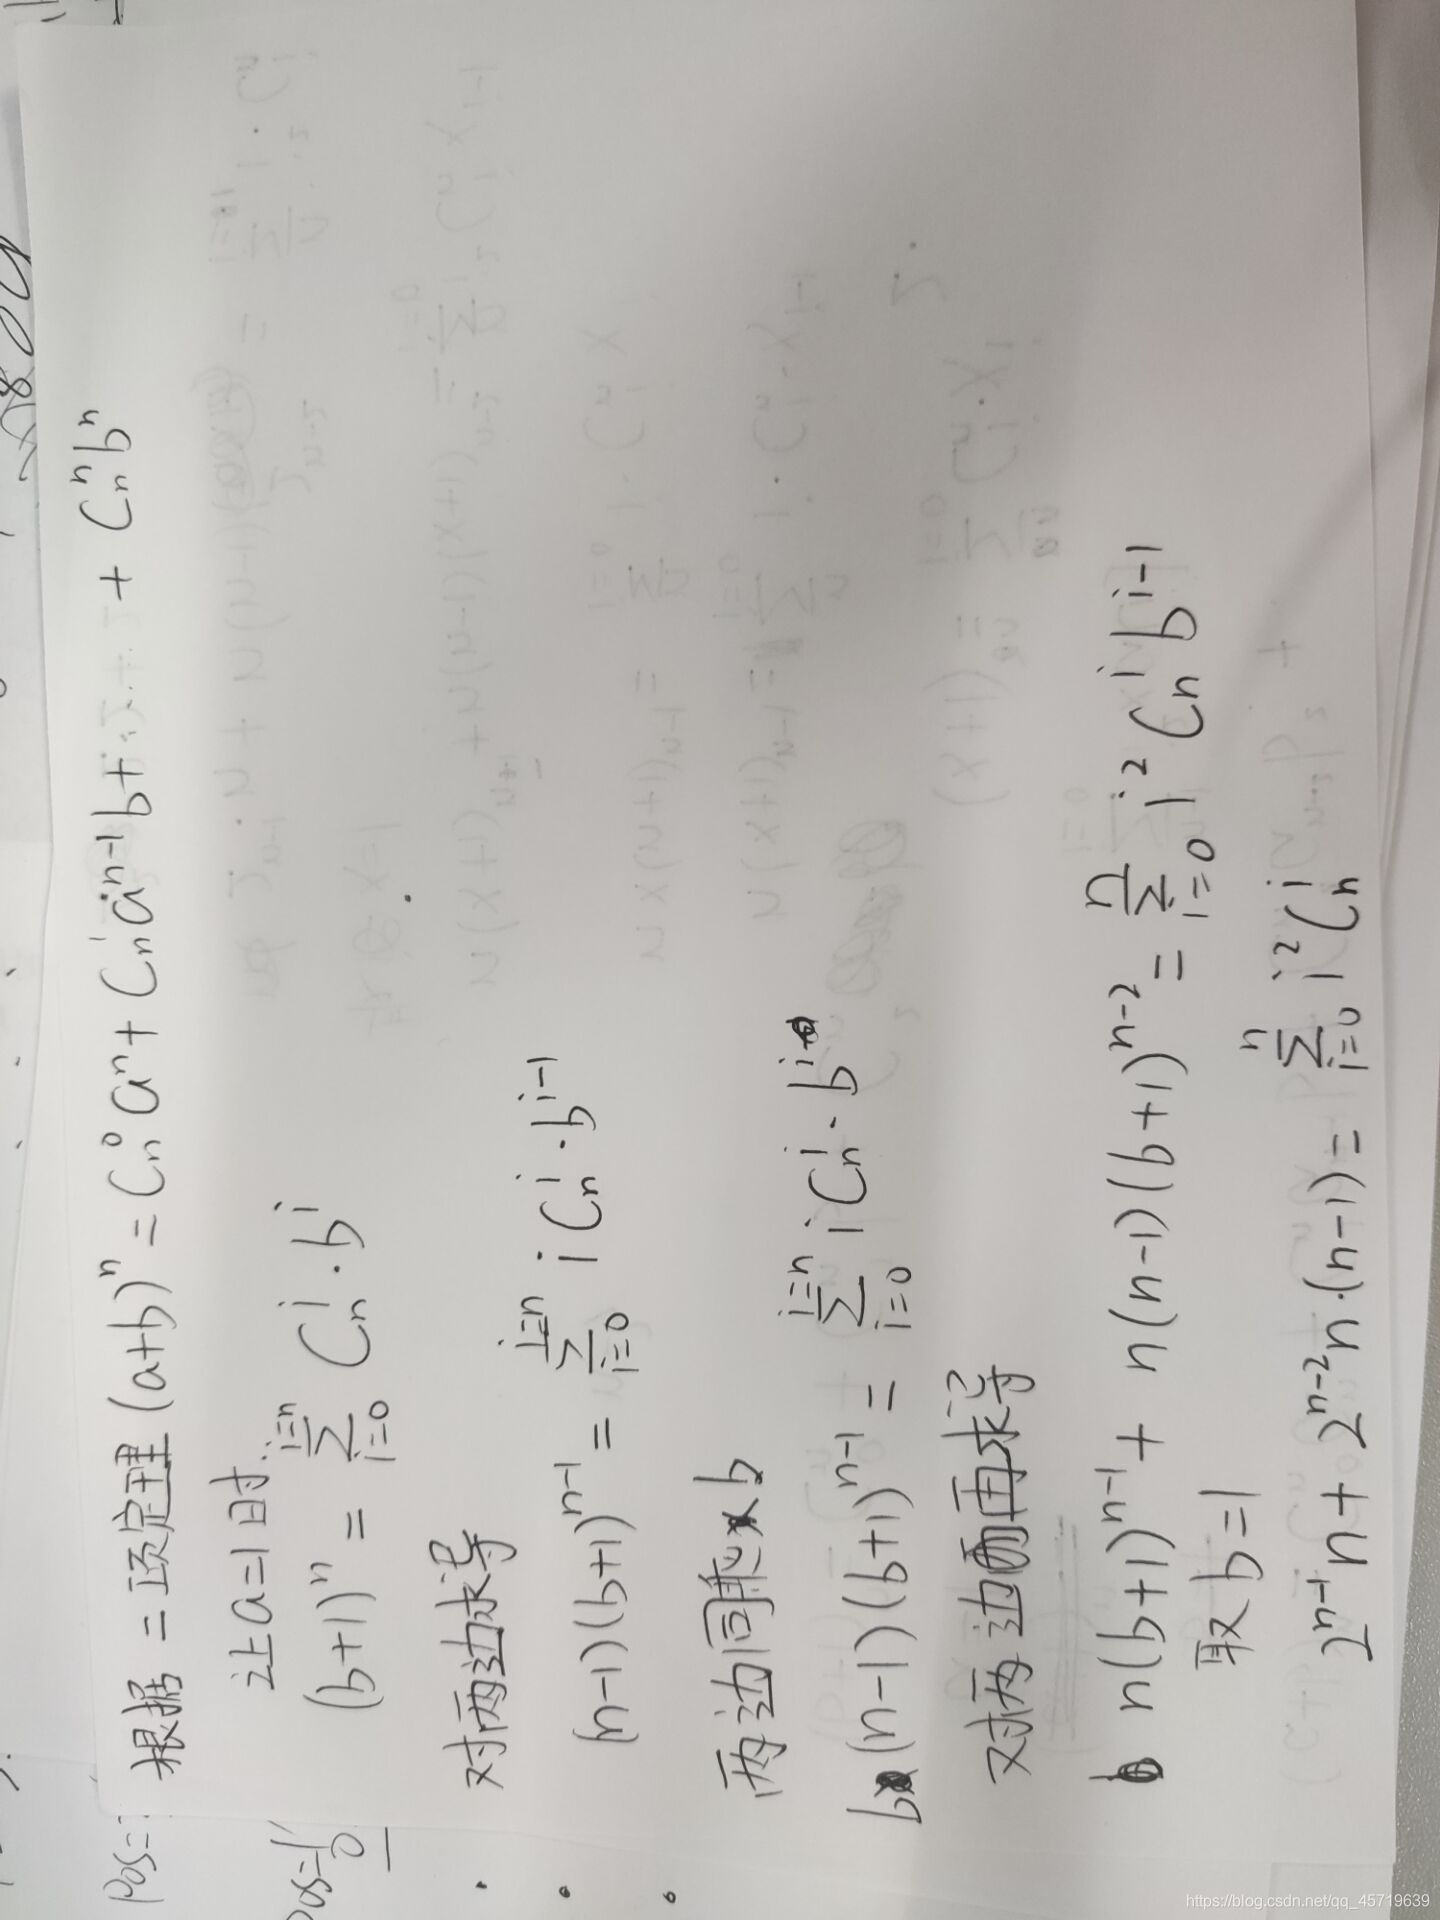 根据二项定理 (a+b)^n = C_n^0 a^n + C_n^1 a^{n-1} b + ... + C_n^n b^n
让a=1时.
(b+1)^n = \sum_{i=0}^{i=n} C_n^i · b^i
对两边求导
(n-1)(b+1)^{n-1} = \sum_{i=0}^{i=n} i C_n^i · b^{i-1}
两边同乘 x b
b (n-1)(b+1)^{n-1} = \sum_{i=0}^{i=n} i C_n^i · b^i
对两边再求导
n(b+1)^{n-1} + n(n-1)(b+1)^{n-2} = \sum_{i=0}^{n} i^2 C_n^i b^{i-1}
取 b=1
2^{n-1} n + 2^{n-2} n·(n-1) = \sum_{i=0}^{n} i^2 C_n^i
Pos=
Pos=
https://blog.csdn.net/qq_45719639